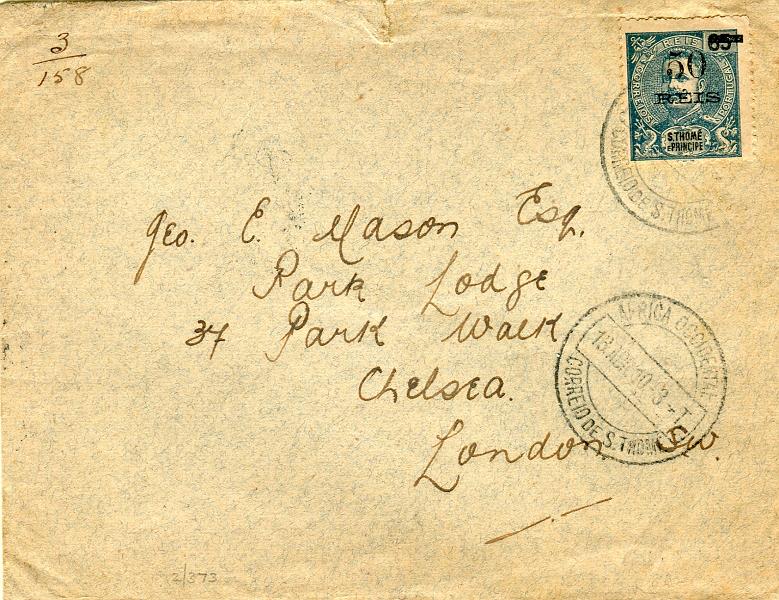 3
158
CORREIOS REIS PORTUGAL
65
50
REIS
S.THOMÉ
E PRINCIPE
CORREIO DE S. THOMÉ
Geo. E. Mason Esq.
Park Lodge
37 Park Walk
Chelsea.
London SW.
AFRICA OCCIDENTAL
10 3-T
CORREIO DE S. THOMÉ
2/373